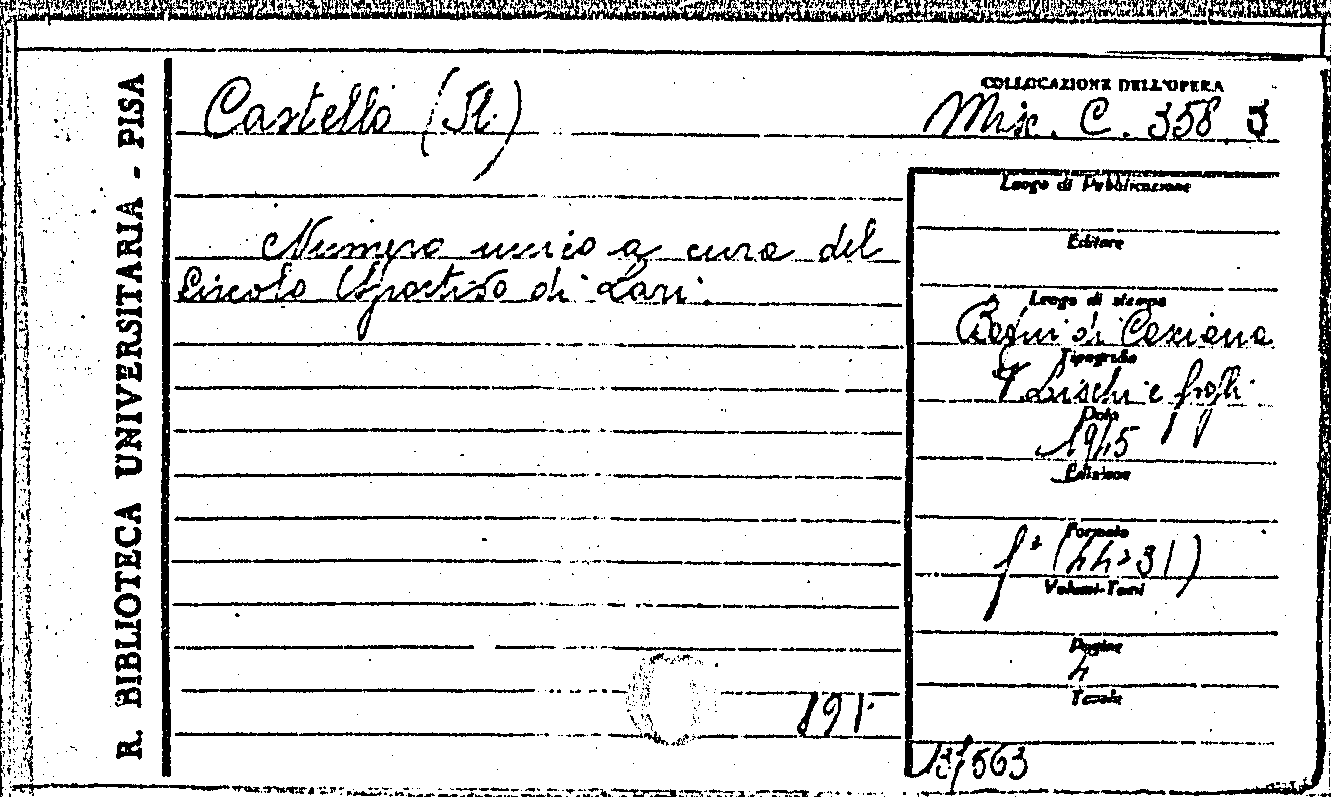 R. BIBLIOTECA UNIVERSITARIA - PISA
Castello (Il)
COLLOCAZIONE DELL'OPERA
Misc. C. 358 5
Numero unico a cura del
Circolo Sportivo di Lari.
Luogo di Pubblicazione
Editore
Luogo di stampa
Bagni di Casciana
Tipografia
Lischi e figli
Data
1945
Edizione
Formato
f° (44×31)
Volumi-Tomi
Pagine
4
Tavole
191
563